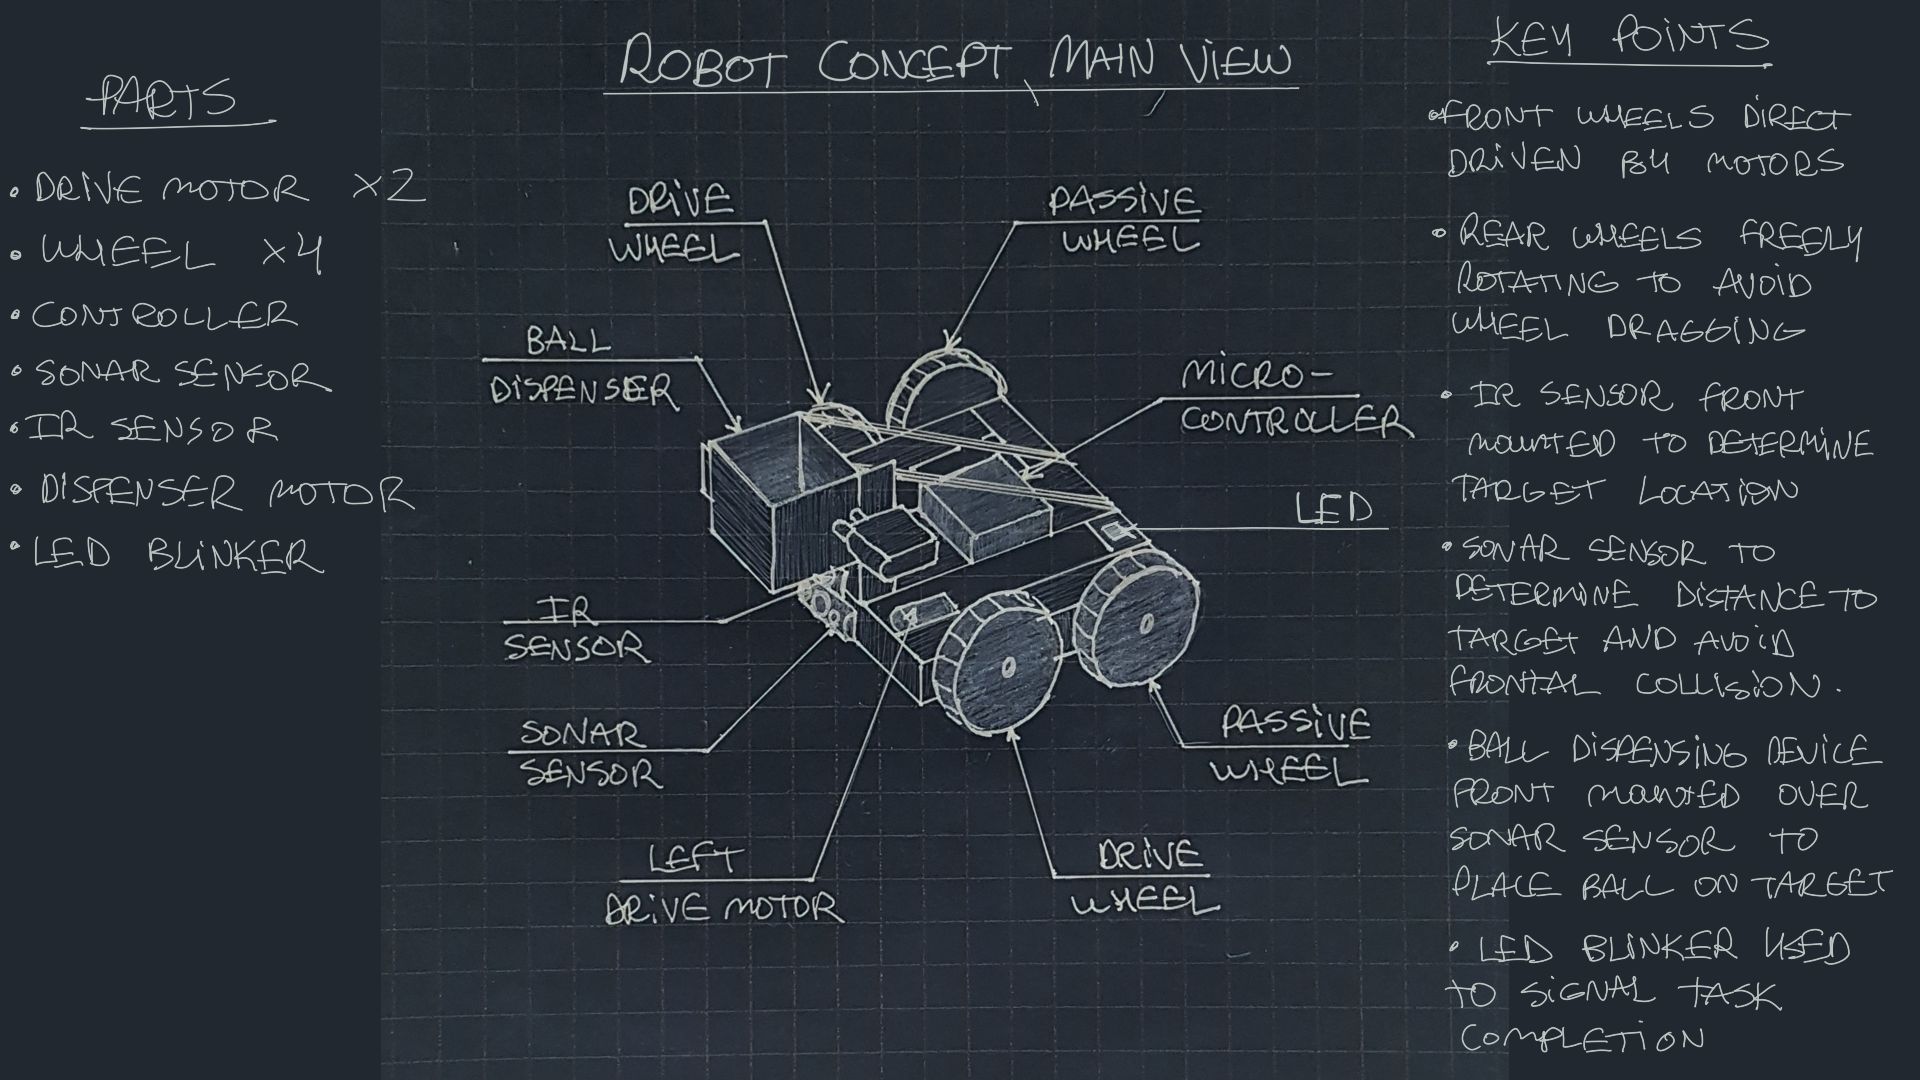 ROBOT CONCEPT, MAIN VIEW
PARTS
• DRIVE MOTOR X2
• WHEEL X4
• CONTROLLER
• SONAR SENSOR
• IR SENSOR
• DISPENSER MOTOR
• LED BLINKER
DRIVE
WHEEL
PASSIVE
WHEEL
BALL
DISPENSER
MICRO-
CONTROLLER
LED
IR
SENSOR
SONAR
SENSOR
PASSIVE
WHEEL
LEFT
DRIVE MOTOR
DRIVE
WHEEL
KEY POINTS
• FRONT WHEELS DIRECT
DRIVEN BY MOTORS
• REAR WHEELS FREELY
ROTATING TO AVOID
WHEEL DRAGGING
• IR SENSOR FRONT
MOUNTED TO DETERMINE
TARGET LOCATION
• SONAR SENSOR TO
DETERMINE DISTANCE TO
TARGET AND AVOID
FRONTAL COLLISION.
• BALL DISPENSING DEVICE
FRONT MOUNTED OVER
SONAR SENSOR TO
PLACE BALL ON TARGET
• LED BLINKER USED
TO SIGNAL TASK
COMPLETION